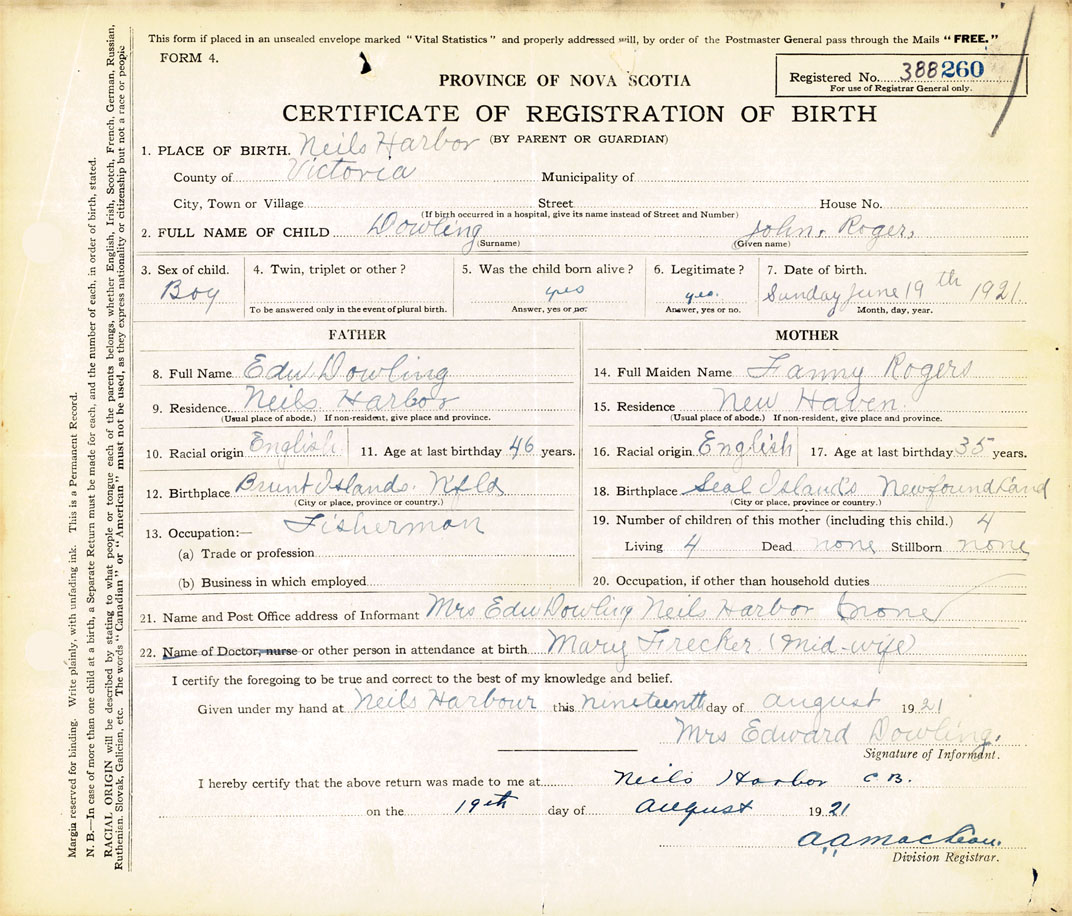 This form if placed in an unsealed envelope marked "Vital Statistics" and properly addressed will, by order of the Postmaster General pass through the Mails "FREE."
FORM 4.
PROVINCE OF NOVA SCOTIA
Registered No. 388260
For use of Registrar General only.
CERTIFICATE OF REGISTRATION OF BIRTH
(BY PARENT OR GUARDIAN)
1. PLACE OF BIRTH. Neils Harbor
County of Victoria Municipality of
City, Town or Village Street House No.
(If birth occurred in a hospital, give its name instead of Street and Number)
2. FULL NAME OF CHILD Dowling John. Roger.
(Surname) (Given name)
3. Sex of child. 4. Twin, triplet or other? 5. Was the child born alive? 6. Legitimate? 7. Date of birth.
Boy yes yes. Sunday June 19th 1921.
To be answered only in the event of plural birth. Answer, yes or no. Answer, yes or no. Month, day, year.
FATHER MOTHER
8. Full Name Edw Dowling 14. Full Maiden Name Fanny Rogers
9. Residence Neils Harbor 15. Residence New Haven.
(Usual place of abode.) If non-resident, give place and province. (Usual place of abode.) If non-resident, give place and province.
10. Racial origin English 11. Age at last birthday 46 years. 16. Racial origin English 17. Age at last birthday 35 years.
12. Birthplace Brunt Islands. Nfld 18. Birthplace Seal Island's Newfoundland
(City or place, province or country.) (City or place, province or country.)
13. Occupation:— Fisherman 19. Number of children of this mother (including this child.) 4
(a) Trade or profession Living 4 Dead none Stillborn none
(b) Business in which employed 20. Occupation, if other than household duties
21. Name and Post Office address of Informant Mrs Edw Dowling Neils Harbor none
22. Name of Doctor, nurse or other person in attendance at birth Mary Firecker (mid-wife)
I certify the foregoing to be true and correct to the best of my knowledge and belief.
Given under my hand at Neils Harbour this nineteenth day of august 1921
Mrs Edward Dowling.
Signature of Informant.
I hereby certify that the above return was made to me at Neils Harbor C B.
on the 19th day of august 1921
A A MacLean.
Division Registrar.
Margin reserved for binding. Write plainly, with unfading ink. This is a Permanent Record.
N. B.—In case of more than one child at a birth, a Separate Return must be made for each, and the number of each, in order of birth, stated.
RACIAL ORIGIN will be described by stating to what people or tongue each of the parents belongs, whether English, Irish, Scotch, French, German, Russian,
Ruthenian, Slovak, Galician, etc. The words "Canadian" or "American" must not be used, as they express nationality or citizenship but not a race or people